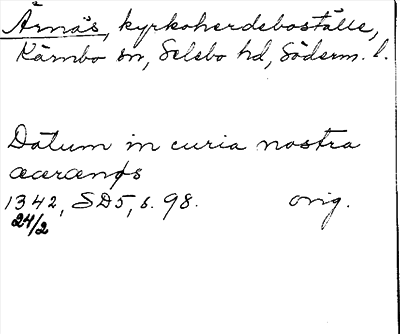 Ärnäs, kyrkoherdeboställe,
Kärnbo sn, Selebo hd, Söderm. l.
Datum in curia nostra
aaranæs
1342, SD5, s. 98. orig.
24/2